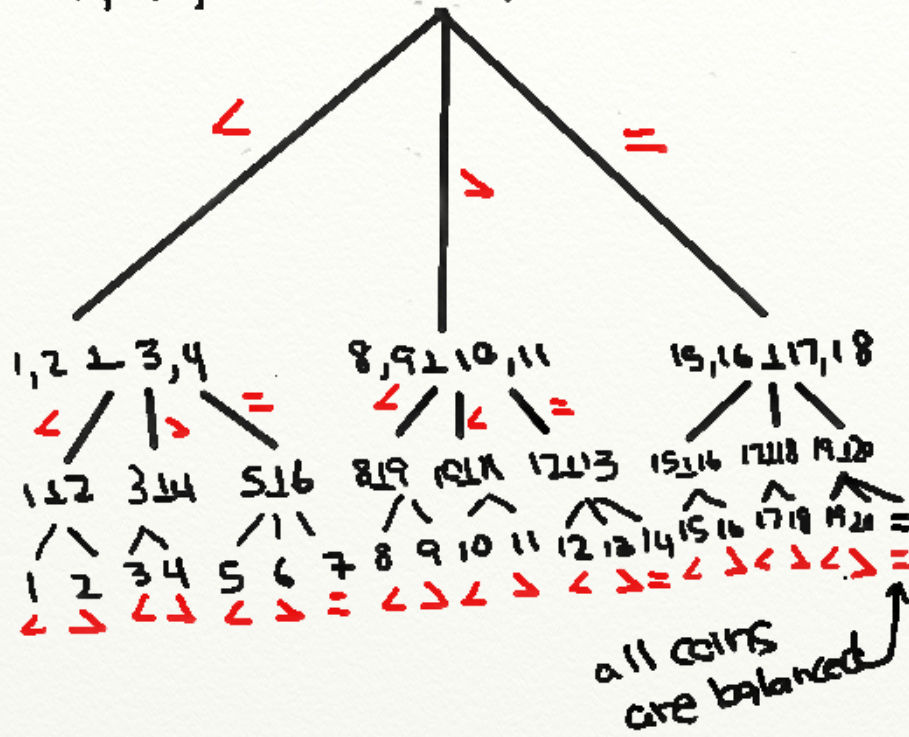 < > =
1,2 ⊥ 3,4 8,9 ⊥ 10,11 15,16 ⊥ 17,18
< > = < < =
1⊥2 3⊥4 5⊥6 8⊥9 10⊥11 12⊥13 15⊥16 17⊥18 19⊥20
1 2 3 4 5 6 7 8 9 10 11 12 13 14 15 16 17 18 19 20 =
< > < > < > = < > < > < > = < > < > < > =
all coins
are balanced